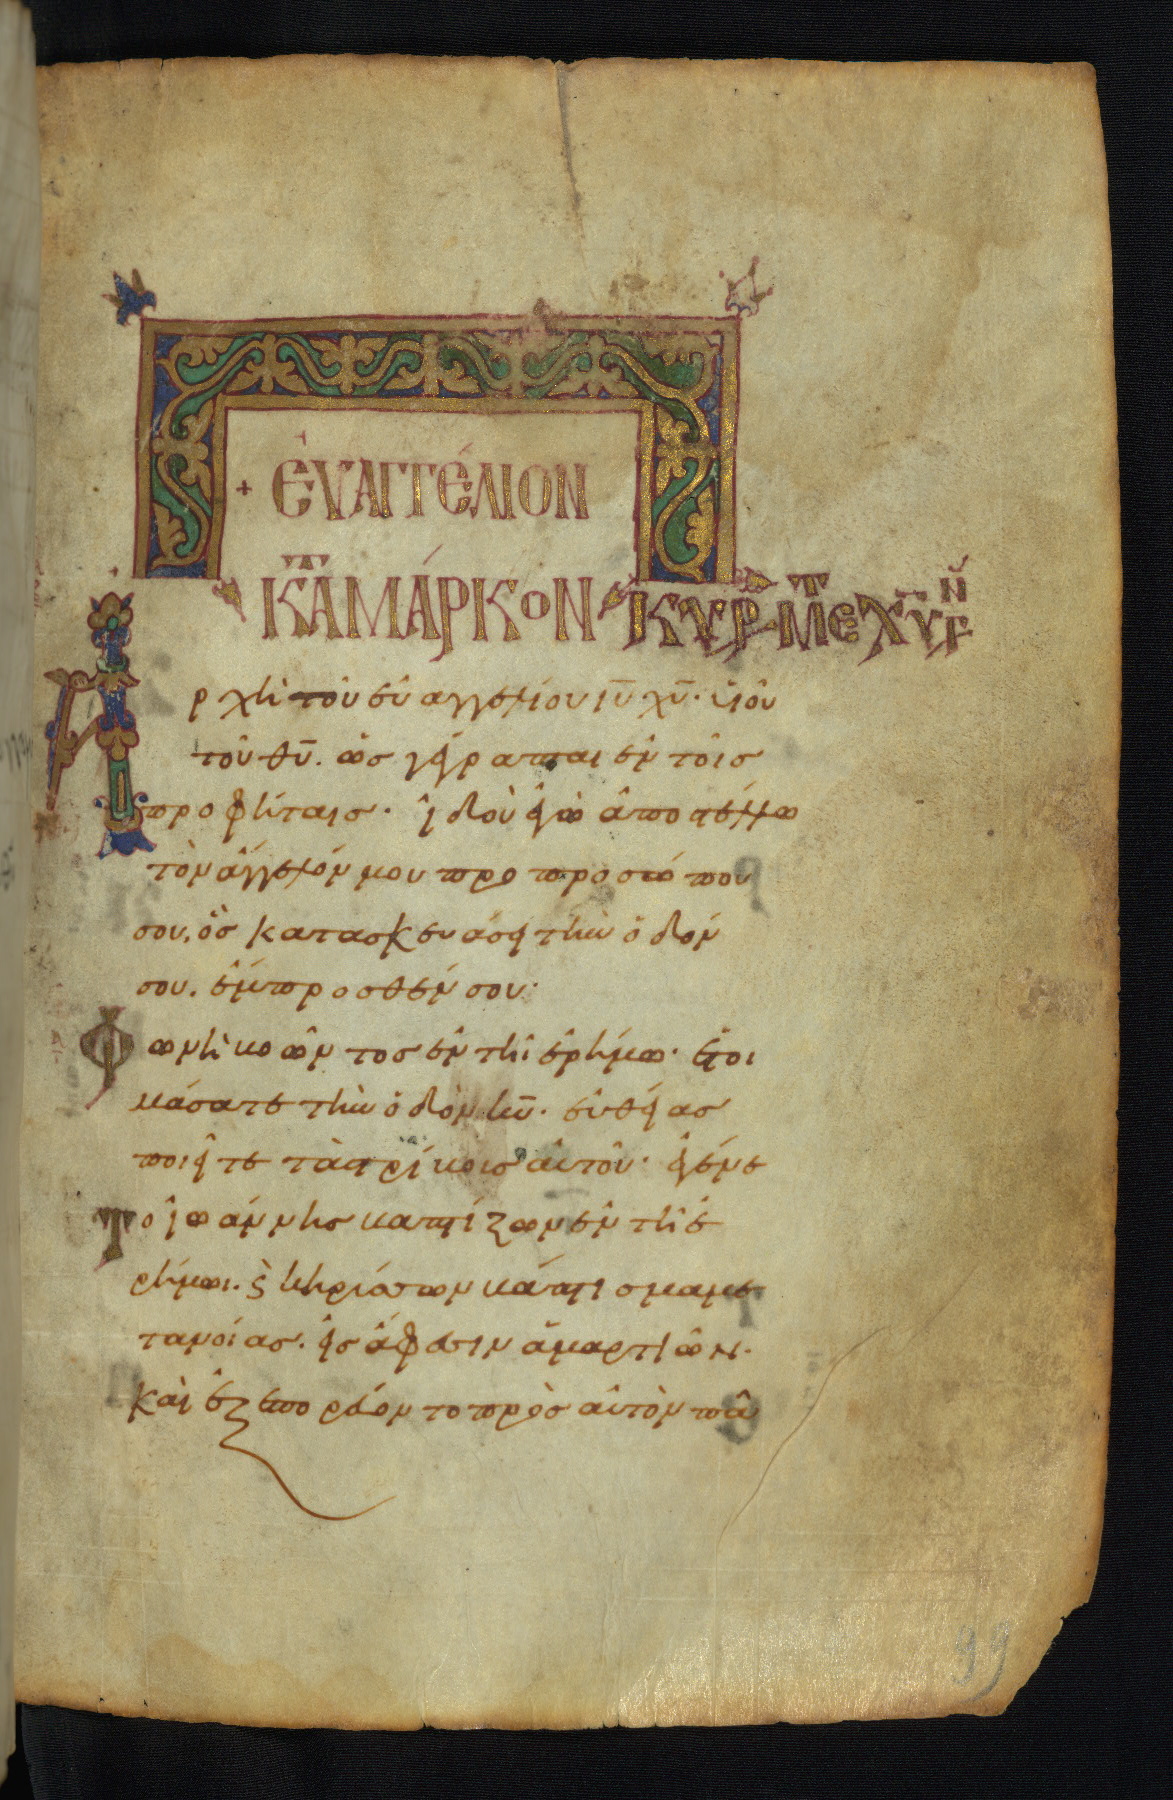 + ἐΥΑΓΓέΛΙΟΝ
ΚΑΤΑ ΜΆΡΚΟΝ ΚΥΡ
Ἀρχὴ τοῦ εὐαγγελίου ιυ χυ· υἱοῦ
τοῦ θυ. ὡς γέγραπται ἐν τοῖς
προφήταις· ἰδοὺ ἐγὼ ἀποστέλλω
τὸν ἄγγελόν μου προ προσώπου
σου, ὃς κατασκευάσει τὴν ὁδόν
σου. ἔμπροσθέν σου·
Φωνὴ βοῶντος ἐν τῆ ἐρήμω· ἑτοι
μάσατε τὴν ὁδὸν κυ· εὐθείας
ποιεῖτε τὰς τρίβους αὐτοῦ· ἐγένε
Το ἰωάννης βαπτίζων ἐν τῆ ἐ
ρήμωι. ϗ κηρύσσων βάπτισμα με
τανοίας. εἰς ἄφεσιν ἁμαρτιῶν·
καὶ ἐξεπορεύοντο πρὸς αὐτὸν πᾶ
99